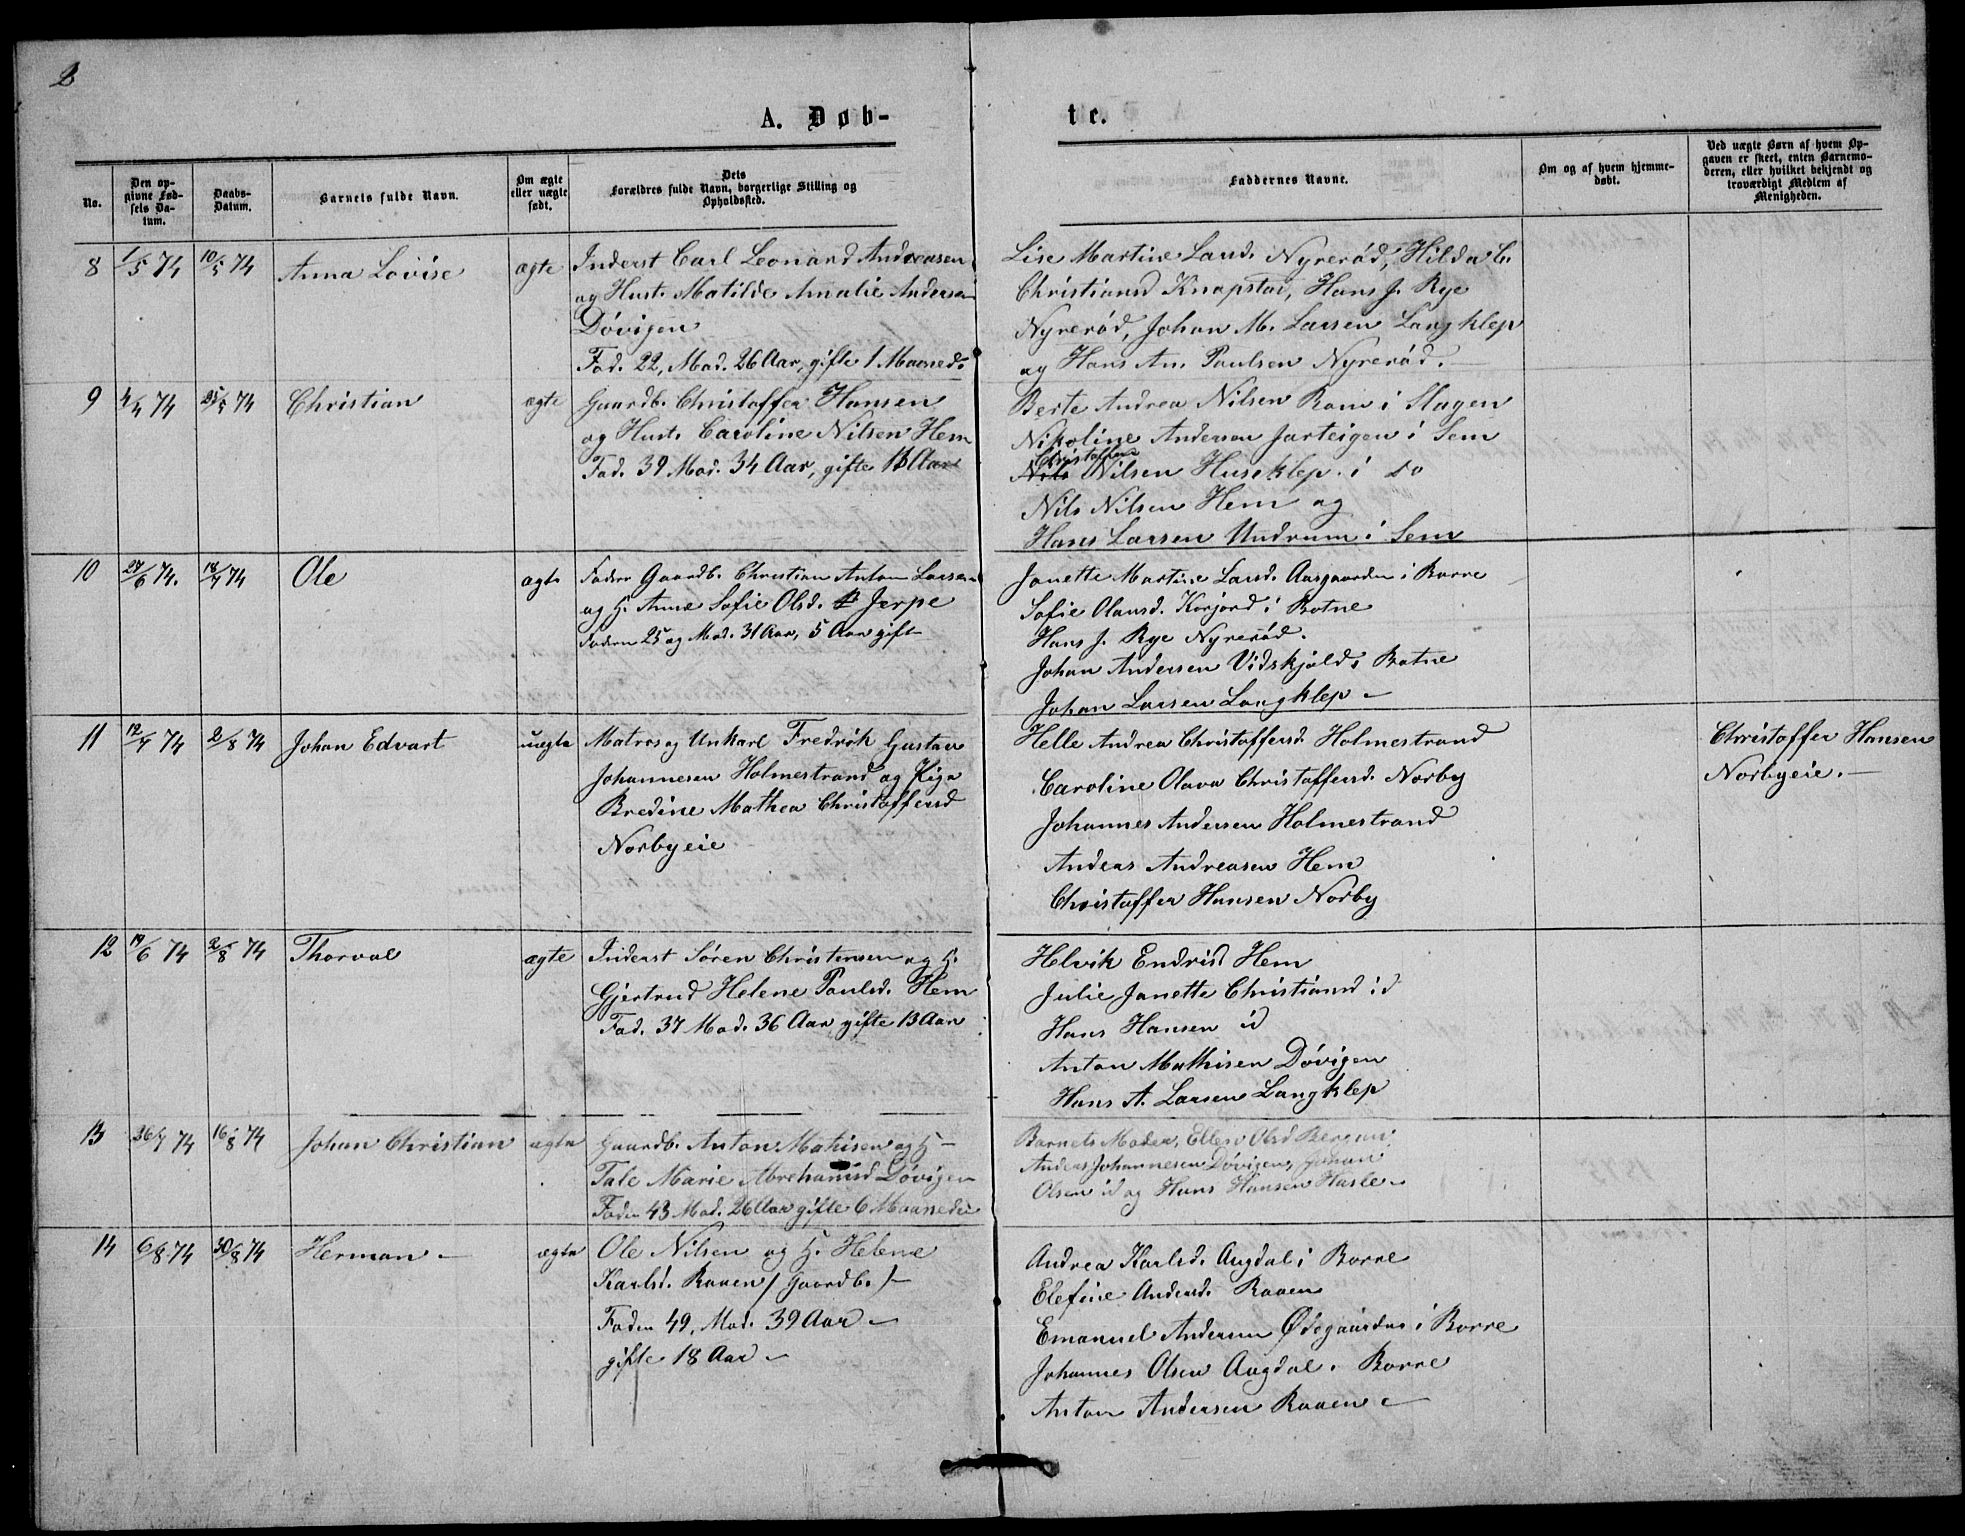 2
A. Døb-
te.
No.
Den op-
givne Fød-
sels Da-
tum.
Daabs-
Datum.
Barnets fulde Navn.
Om ægte
eller uægte
født.
Dets
Forældres fulde Navn, borgerlige Stilling og
Opholdssted.
Faddernes Navne.
Om og af hvem hjemme-
døbt.
Ved uægte Børn af hvem Op-
gaven er skeet, enten Barnemo-
deren, eller hvilket bekjendt og
troværdigt Medlem af
Menigheden.
8 1/5 74 10/5 74 Anna Lovise ægte Inderst Carl Leonard Andreasen
og Hust. Matilde Amalie Andersen
Døvigen
Fad. 22, Mod. 26 Aar, gifte 1 Maaned.
Lise Martine Larsd. Nyrerød, Hilda C.
Christiansd Knapstad, Hans J. Rye
Nyrerød, Johan M. Larsen Langklep
og Hans An. Paulsen Nyrerød.
9 4/4 74 25/5 74 Christian ægte Gaardb. Christoffer Hansen
og Hust. Caroline Nilsen Hem
Fad. 39 Mod. 34 Aar, gifte 13 Aar
Berte Andrea Nilsen Ram i Slagen
Nikoline Andersen Jarteigen i Sem
Christoffer
Nils Nilsen Huseklep i do
Nils Nilsen Hem og
Hans Larsen Undrum i Sem
10 27/6 74. 12/7 74 Ole ægte Fader Gaardb. Christian Anton Larsen
og H. Anne Sofie Olsd. Jerpe
Faderen 25 og Mod. 31 Aar, 5 Aar gift
Janette Martine Larsd. Aasgaarden i Borre
Sofie Olausd. Korjord i Botne
Hans J. Rye Nyrerød.
Johan Andersen Vidskjold, Botne
Johan Larsen Langklep -
11 12/7 74 2/8 74 Johan Edvart uægte Matros og Unkarl Fredrik Gustav
Johannesen Holmestrand og Piga
Bredine Mathea Christoffersd
Norbyeie
Helle Andrea Christoffersd Holmestrand
Caroline Olava Christoffersd. Norby
Johannes Andersen Holmestrand
Anders Andreasen Hem
Christoffer Hansen Norby
Christoffer Hansen
Norbyeie. -
12 19/6 74 2/8 74 Thorval ægte Inderst Søren Christensen og H.
Gjertrud Helene Paulsd. Hem
Fad. 37 Mod. 36 Aar gifte 13 Aar
Helvik Endrisd Hem
Julie Janette Christiansd id
Hans Hansen id
Anton Mathisen Døvigen
Hans A. Larsen Langklep
13 26/7 74 16/8 74 Johan Christian ægte Gaardb. Anton Mathisen og H -
Tale Marie Abrahamsd Døvigen
Faden 43 Mod. 26 Aar gifte 6 Maaneder
Barnets Moder, Ellen Olsd Bergan,
Anders Johannesen Døvigen, Johan
Olsen id og Hans Hansen Hasle -
14 6/8 74 30/8 74 Herman - ægte Ole Nilsen og H. Helene
Karlsd. Raaen / Gaardb. / -
Faden 49, Mod. 39 Aar -
gifte 18 Aar -
Andrea Karlsd. Augdal i Borre
Elefine Andersd. Raaen
Emanuel Andersen Ødegaarden i Borre
Johannes Olsen Augdal. Borre
Anton Andersen Raaen -